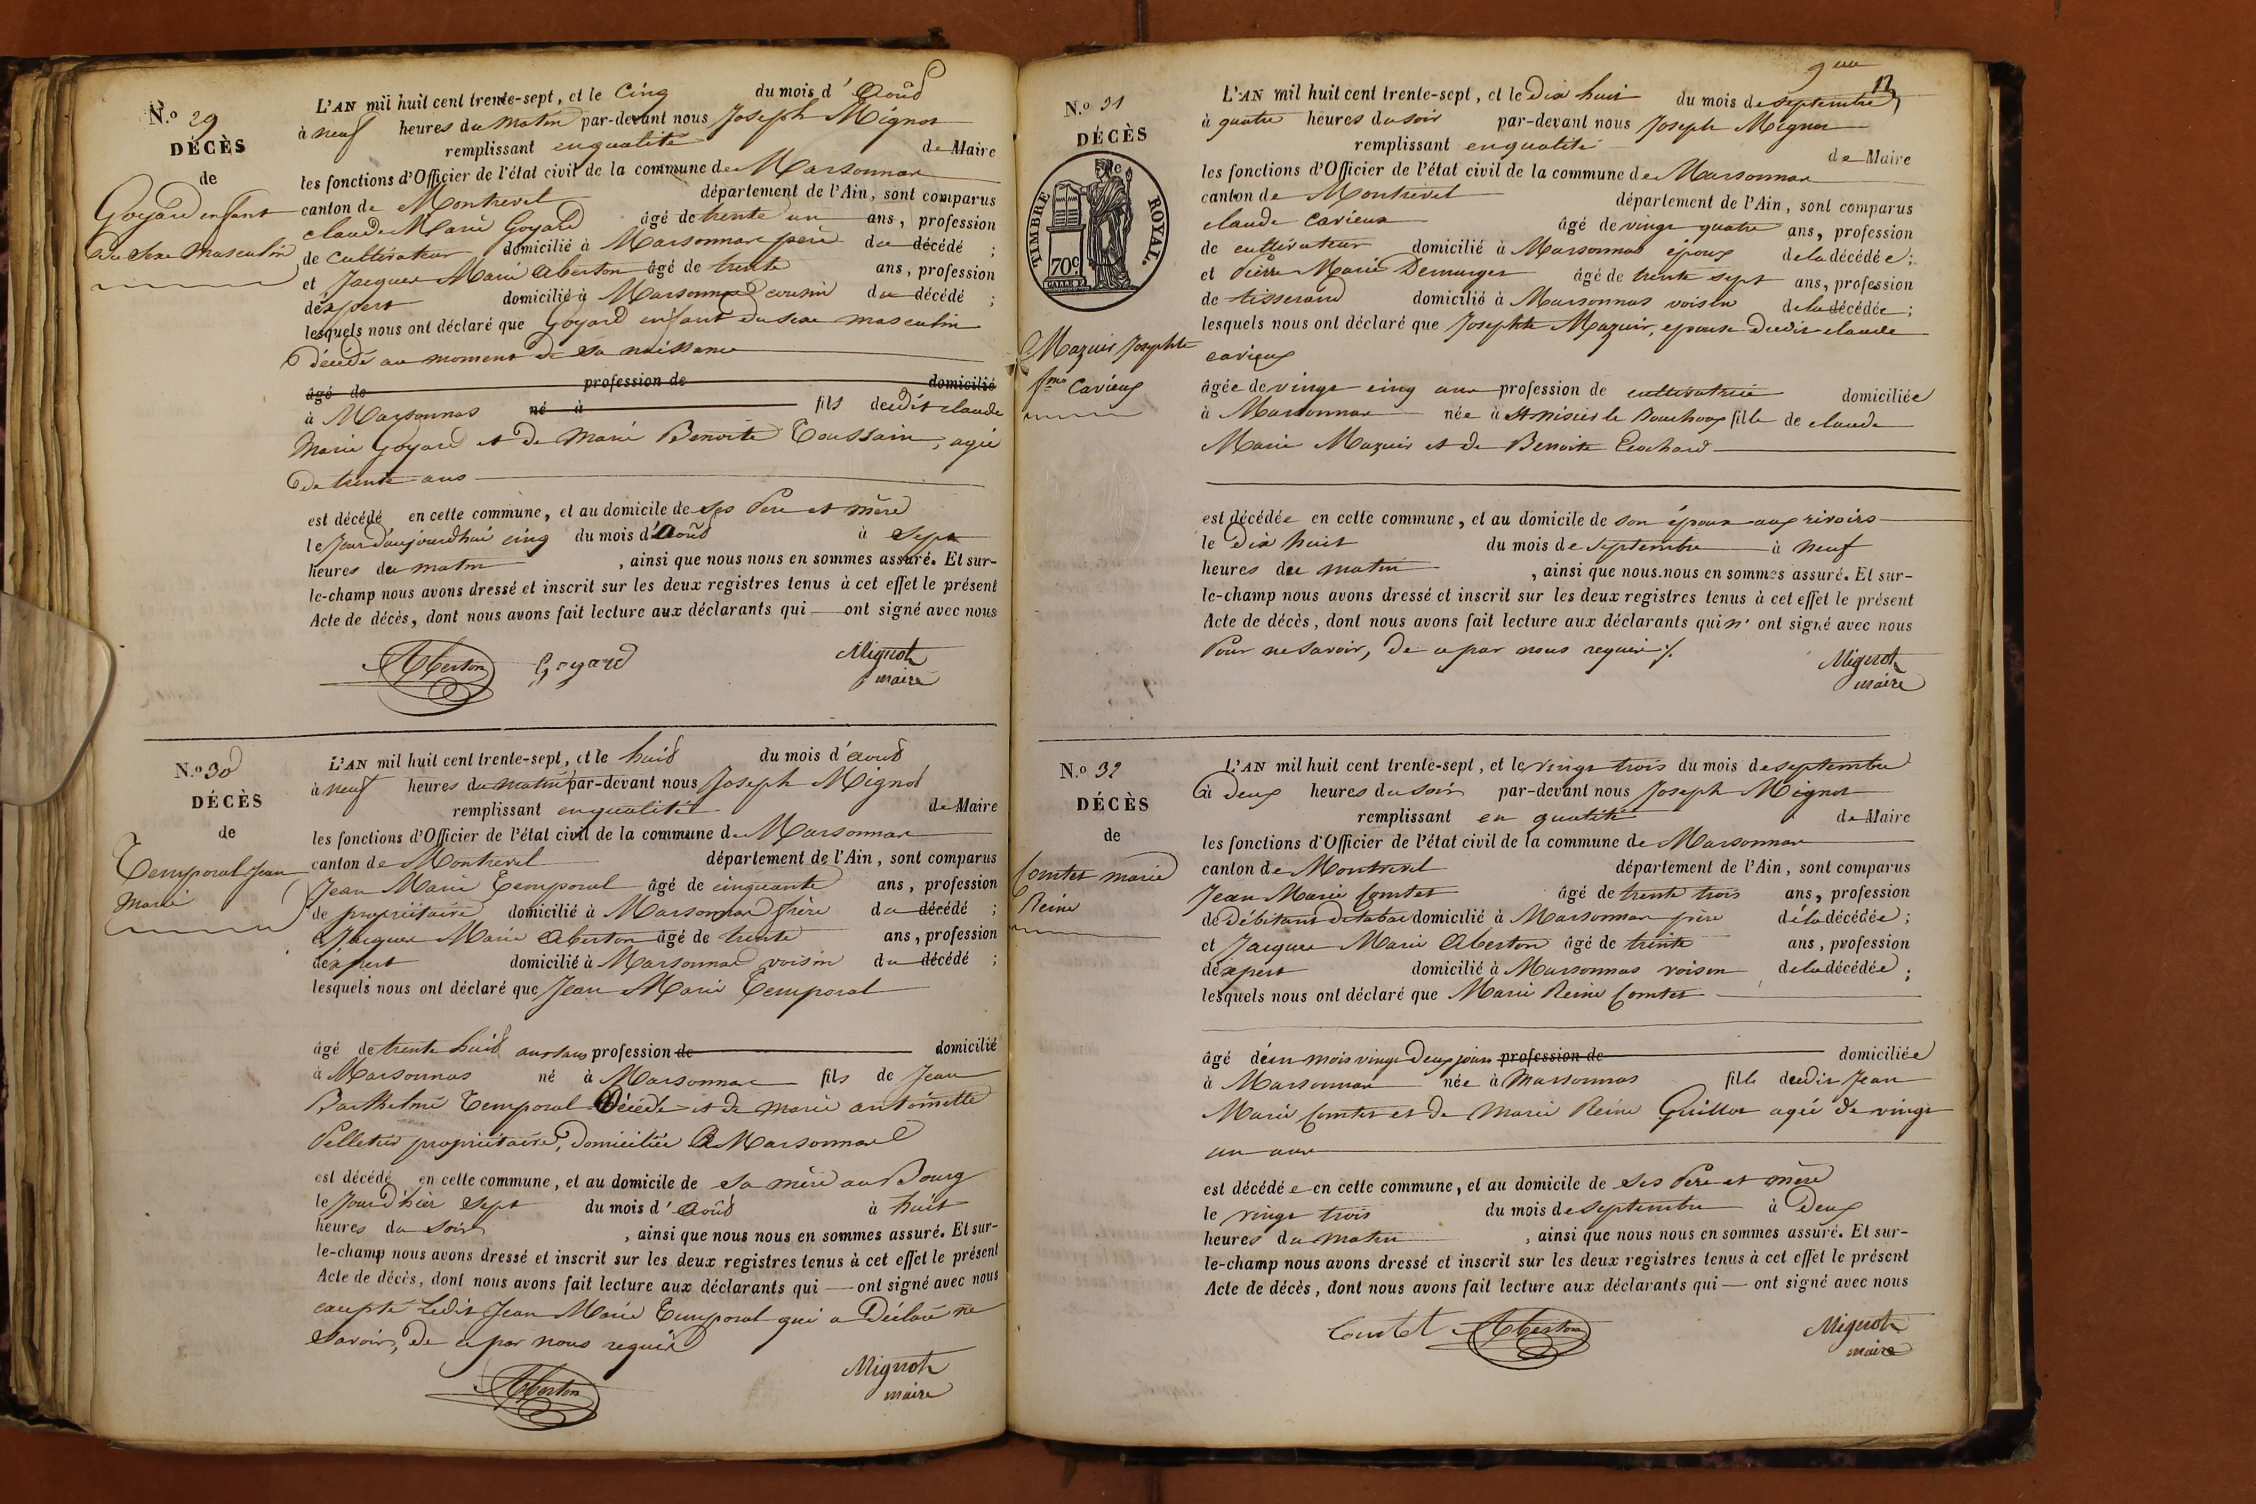 N.o 29
DÉCÈS
de
Goyard enfant
du sexe masculin
L'AN mil huit cent trente-sept, et le cinq du mois d'Août
à neuf heures du matin par-devant nous Joseph Mignot
remplissant en qualité de Maire
les fonctions d'Officier de l'état civil de la commune de Marsonnas
canton de Montrevel département de l'Ain, sont comparus
claude Marie Goyard âgé de trente un ans, profession
de cultivateur domicilié à Marsonnas père du décédé ;
et Jacques Marie Aberton âgé de trente ans, profession
d'expert domicilié à Marsonnas cousin du décédé ;
lesquels nous ont déclaré que Goyard enfant du sexe masculin
décédé au moment de sa naissance
âgé de profession de domicilié
à Marsonnas né à fils dudit claude
Marie Goyard et de Marie Benoite Toussain, agée
de trente ans
est décédé en cette commune, et au domicile de ses Père et mère
le Jour d'aujourd'hui cinq du mois d'Août à sept
heures du matin, ainsi que nous nous en sommes assuré. Et sur-
le-champ nous avons dressé et inscrit sur les deux registres tenus à cet effet le présent
Acte de décès, dont nous avons fait lecture aux déclarants qui ont signé avec nous
Aberton Goyard Mignot
maire
N.o 30
DÉCÈS
de
Temporal Jean
Marie
L'AN mil huit cent trente-sept, et le huit du mois d'août
à neuf heures du matin par-devant nous Joseph Mignot
remplissant en qualité de Maire
les fonctions d'Officier de l'état civil de la commune de Marsonnas
canton de Montrevel département de l'Ain, sont comparus
Jean Marie Temporal âgé de cinquante ans, profession
de propriétaire domicilié à Marsonnas frère du décédé ;
et Jacques Marie Aberton âgé de trente ans, profession
d'expert domicilié à Marsonnas voisin du décédé ;
lesquels nous ont déclaré que Jean Marie Temporal
âgé de trente huit ans sans profession de domicilié
à Marsonnas né à Marsonnas fils de Jean
Barthelmé Temporal Décédé et de marie antoinette
Pelletier propriétaire, domiciliée à Marsonnas
est décédé en cette commune, et au domicile de sa mère au Bourg
le Jour d'hier sept du mois d'Août à huit
heures du soir, ainsi que nous nous en sommes assuré. Et sur-
le-champ nous avons dressé et inscrit sur les deux registres tenus à cet effet le présent
Acte de décès, dont nous avons fait lecture aux déclarants qui ont signé avec nous
excepté Ledit Jean Marie Temporal qui a Déclaré ne
savoir, de ce par nous requis
Aberton Mignot
maire
12
N.o 31
DÉCÈS
TIMBRE ROYAL.
70c
Mazuir Josephte
fme Carieux
L'AN mil huit cent trente-sept, et le Dix huit du mois de septembre
à quatre heures du soir par-devant nous Joseph Mignot
remplissant en qualité de Maire
les fonctions d'Officier de l'état civil de la commune de Marsonnas
canton de Montrevel département de l'Ain, sont comparus
claude Carieux âgé de vingt quatre ans, profession
de cultivateur domicilié à Marsonnas époux de la décédée ;
et Pierre Marie Demurger âgé de trente sept ans, profession
de tisserand domicilié à Marsonnas voisin de la décédée ;
lesquels nous ont déclaré que Josephte Mazuir, epouse Dudit claude
carieux
âgée de vingt cinq ans profession de cultivatrice domiciliée
à Marsonnas née à St nisier le Bouchoux fille de claude
Marie Mazuir et de Benoite Cochard
est décédée en cette commune, et au domicile de son époux aux rivoirs
le Dix huit du mois de septembre à neuf
heures du matin, ainsi que nous nous en sommes assuré. Et sur-
le-champ nous avons dressé et inscrit sur les deux registres tenus à cet effet le présent
Acte de décès, dont nous avons fait lecture aux déclarants qui n'ont signé avec nous
Pour ne savoir, De ce par nous requis ./.
Mignot
maire
N.o 32
DÉCÈS
de
Comtet marie
Reine
L'AN mil huit cent trente-sept, et le vingt trois du mois de septembre
à Deux heures du soir par-devant nous Joseph Mignot
remplissant en qualité de Maire
les fonctions d'Officier de l'état civil de la commune de Marsonnas
canton de Montrevel département de l'Ain, sont comparus
Jean Marie Comtet âgé de trente trois ans, profession
de Débitant de tabac domicilié à Marsonnas père de la décédée ;
et Jacques Marie Aberton âgé de trente ans, profession
d'expert domicilié à Marsonnas voisin de la décédée ;
lesquels nous ont déclaré que Marie Reine Comtet
âgé d'un mois vingt Deux jours profession de domiciliée
à Marsonnas née à Marsonnas fille dudit Jean
Marie Comtet et de Marie Reine Guillot agée de vingt
un ans
est décédée en cette commune, et au domicile de ses Père et mère
le vingt trois du mois de septembre à Deux
heures du matin, ainsi que nous nous en sommes assuré. Et sur-
le-champ nous avons dressé et inscrit sur les deux registres tenus à cet effet le présent
Acte de décès, dont nous avons fait lecture aux déclarants qui ont signé avec nous
Comtet Aberton Mignot
maire